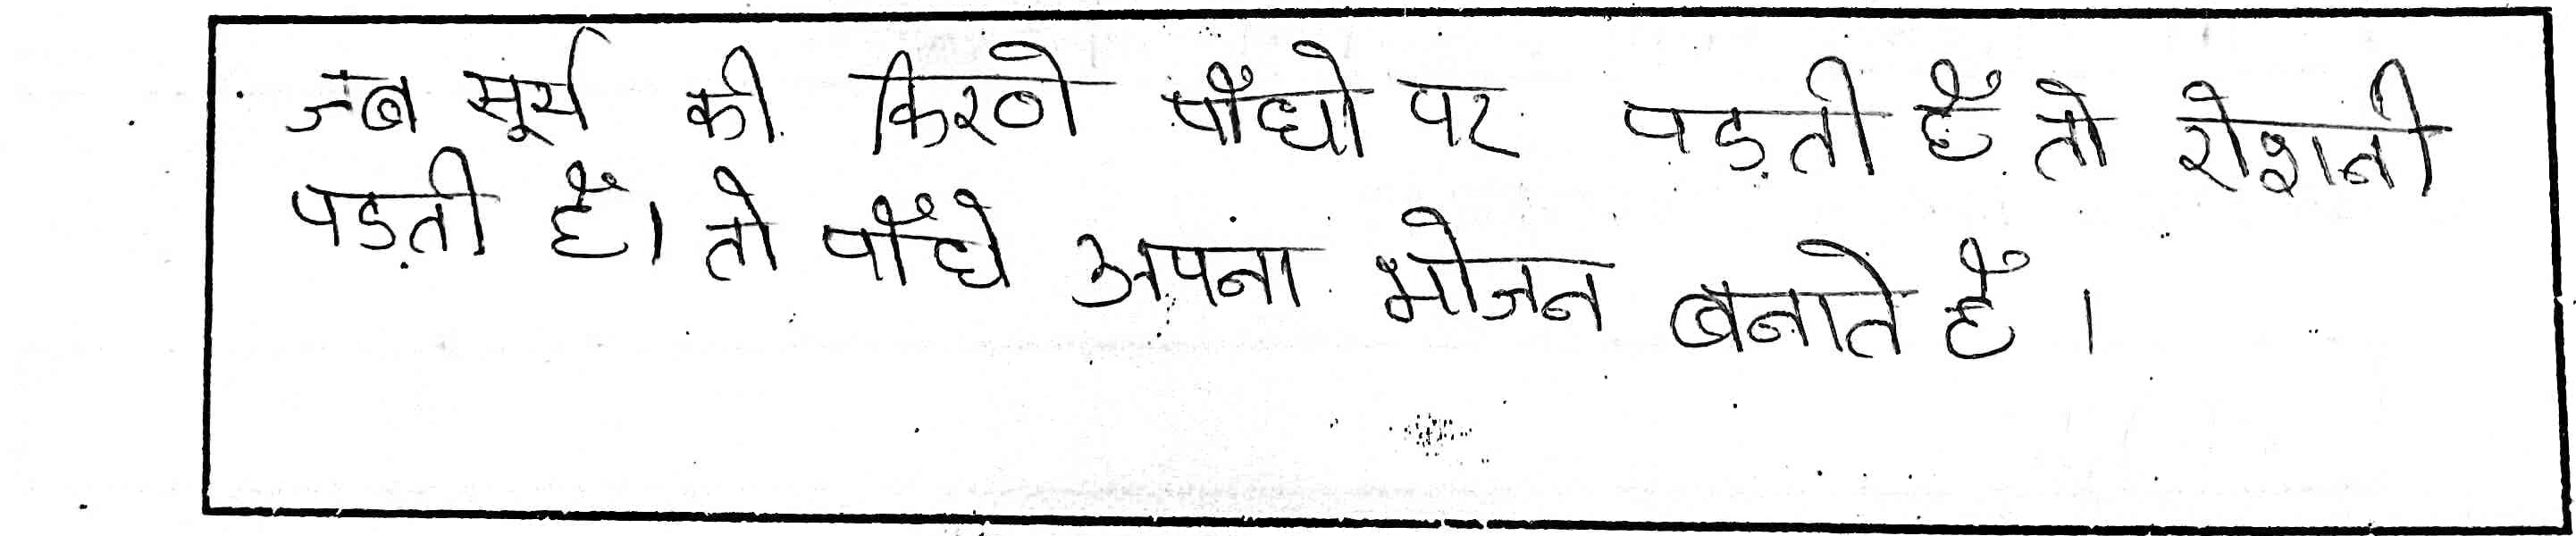 जब सूर्य की किरणे पौधो पर पड़ती हैं तो रोशनी
पड़ती हैं। तो पौधे अपना भोजन बनाते हैं।